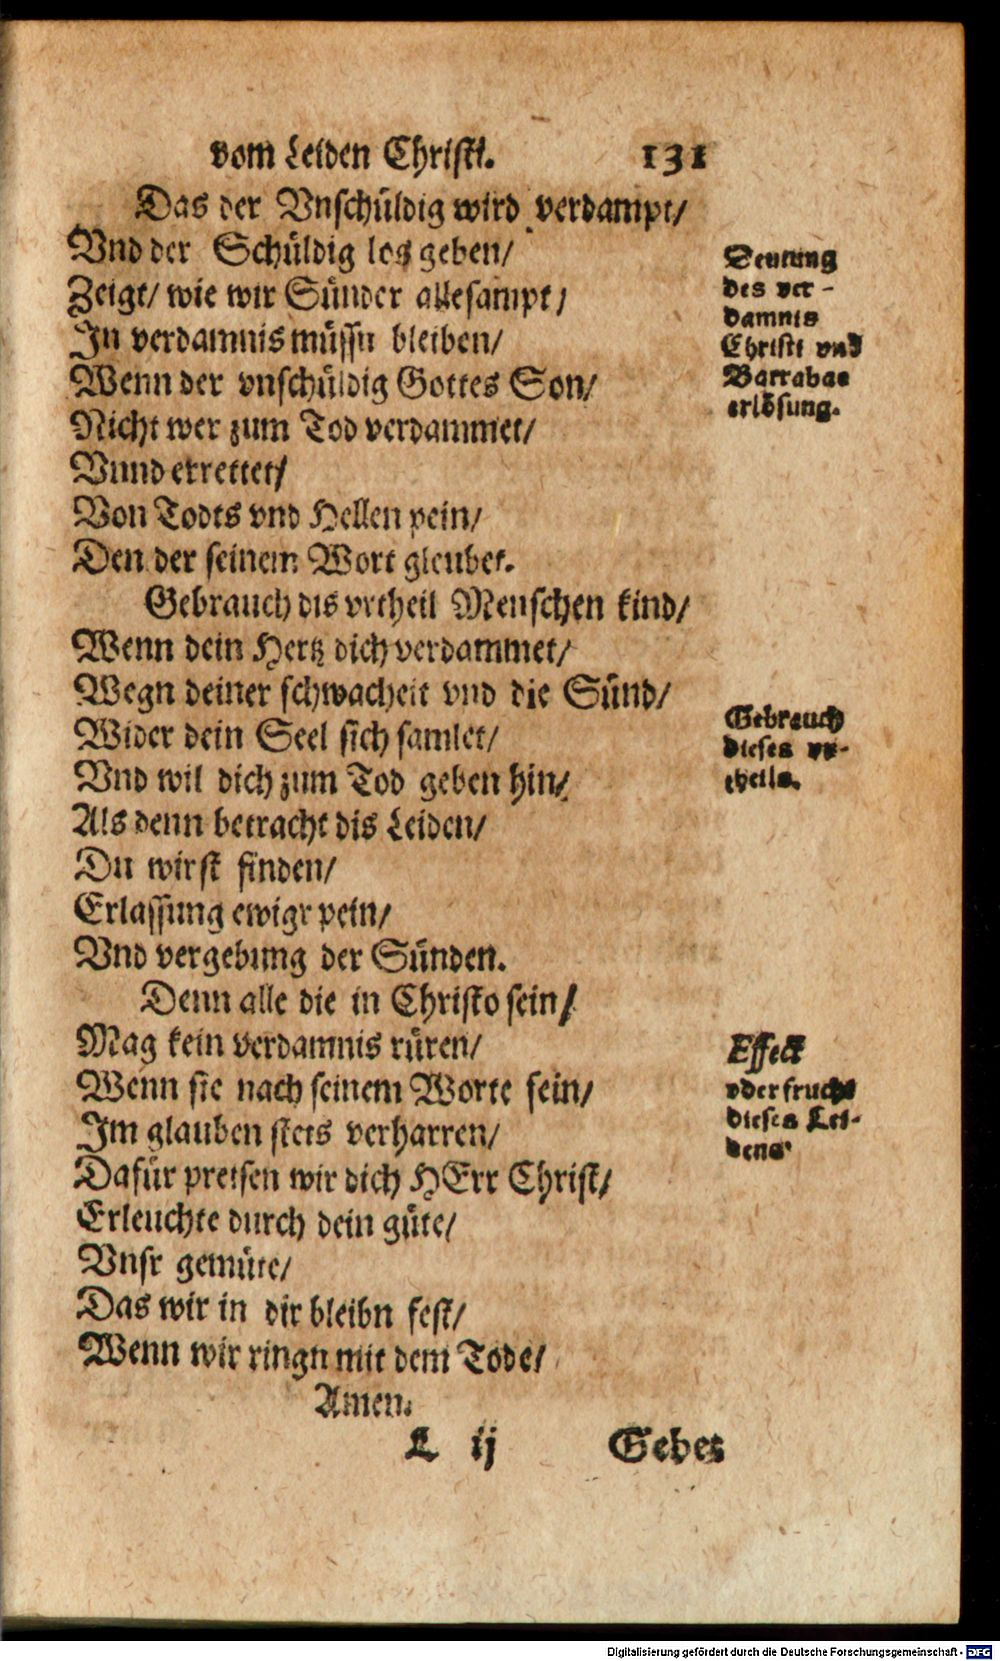 vom Leiden Christi. 131
Das der Vnschüldig wird verdampt/
Vnd der Schüldig los geben/
Zeigt/ wie wir Sünder allesampt/
In verdamnis müssn bleiben/
Wenn der vnschüldig Gottes Son/
Nicht wer zum Tod verdammet/
Vnnd errettet/
Von Todts vnd Hellen pein/
Den der seinem Wort gleubet.
Deutung
des ver-
damnis
Christi vnd
Barrabae
erlösung.
Gebrauch dis vrtheil Menschen kind/
Wenn dein Hertz dich verdammet/
Wegn deiner schwacheit vnd die Sünd/
Wider dein Seel sich samlet/
Vnd wil dich zum Tod geben hin/
Als denn betracht dis Leiden/
Du wirst finden/
Erlassung ewigr pein/
Vnd vergebung der Sünden.
Gebrauch
dieses vr-
theils.
Denn alle die in Christo sein/
Mag kein verdamnis rüren/
Wenn sie nach seinem Worte fein/
Im glauben stets verharren/
Dafür preisen wir dich HErr Christ/
Erleuchte durch dein güte/
Vnsr gemüte/
Das wir in dir bleibn fest/
Wenn wir ringn mit dem Tode/
Amen.
Effect
oder frucht
dieses Lei-
dens
L ij Gebet
Digitalisierung gefördert durch die Deutsche Forschungsgemeinschaft - DFG